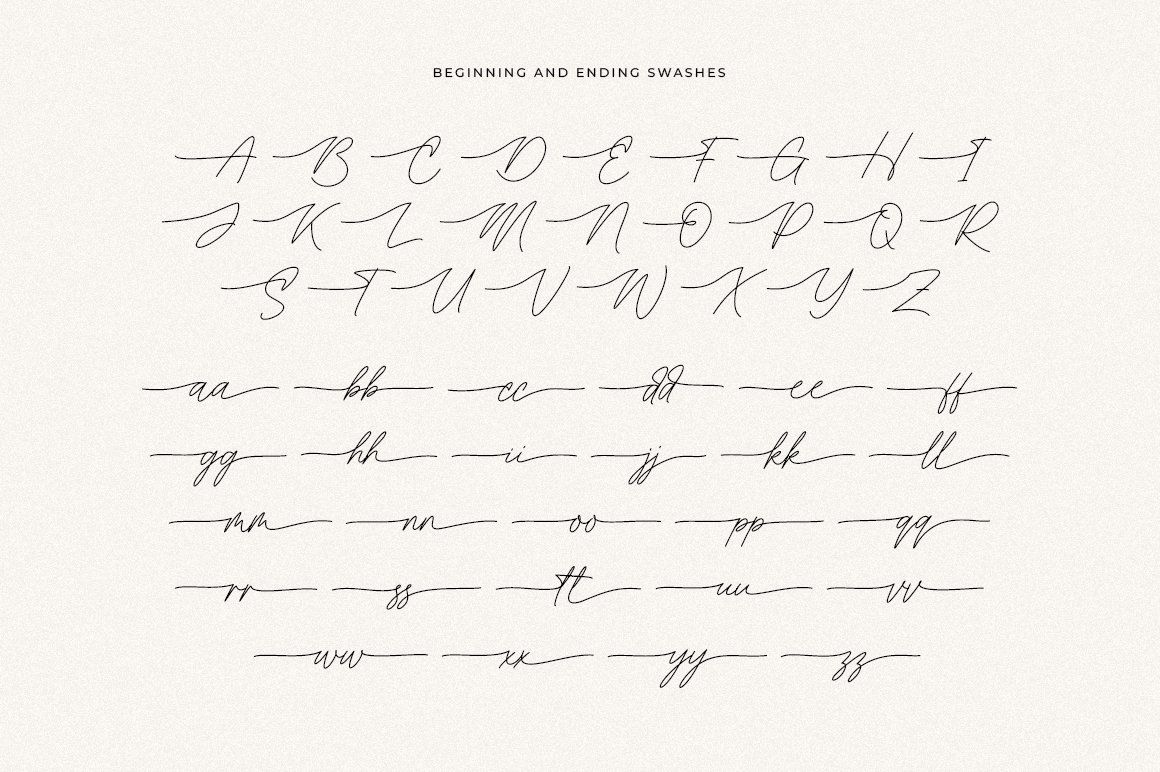 BEGINNING AND ENDING SWASHES
A B C D E F G H I
J K L M N O P Q R
S T U V W X Y Z
aa bb cc dd ee ff
gg hh ii jj kk ll
mm nn oo pp qq
rr ss tt uu vv
ww xx yy zz